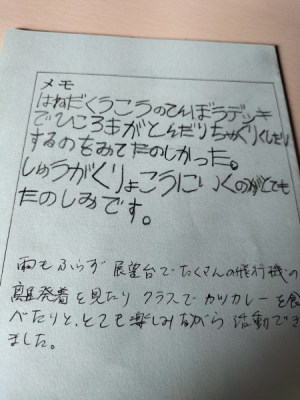 メモ
はねだくうこうのてんぼうデッキ
でひこうきがとんだりちゃくりくしたり
するのをみてたのしかった。
しゅうがくりょこうにいくのがとても
たのしみです。
雨もふらず 展望台でたくさんの飛行機の
離発着を見たり クラスでカツカレーを食
べたりと、とても楽しみながら 活動でき
ました。